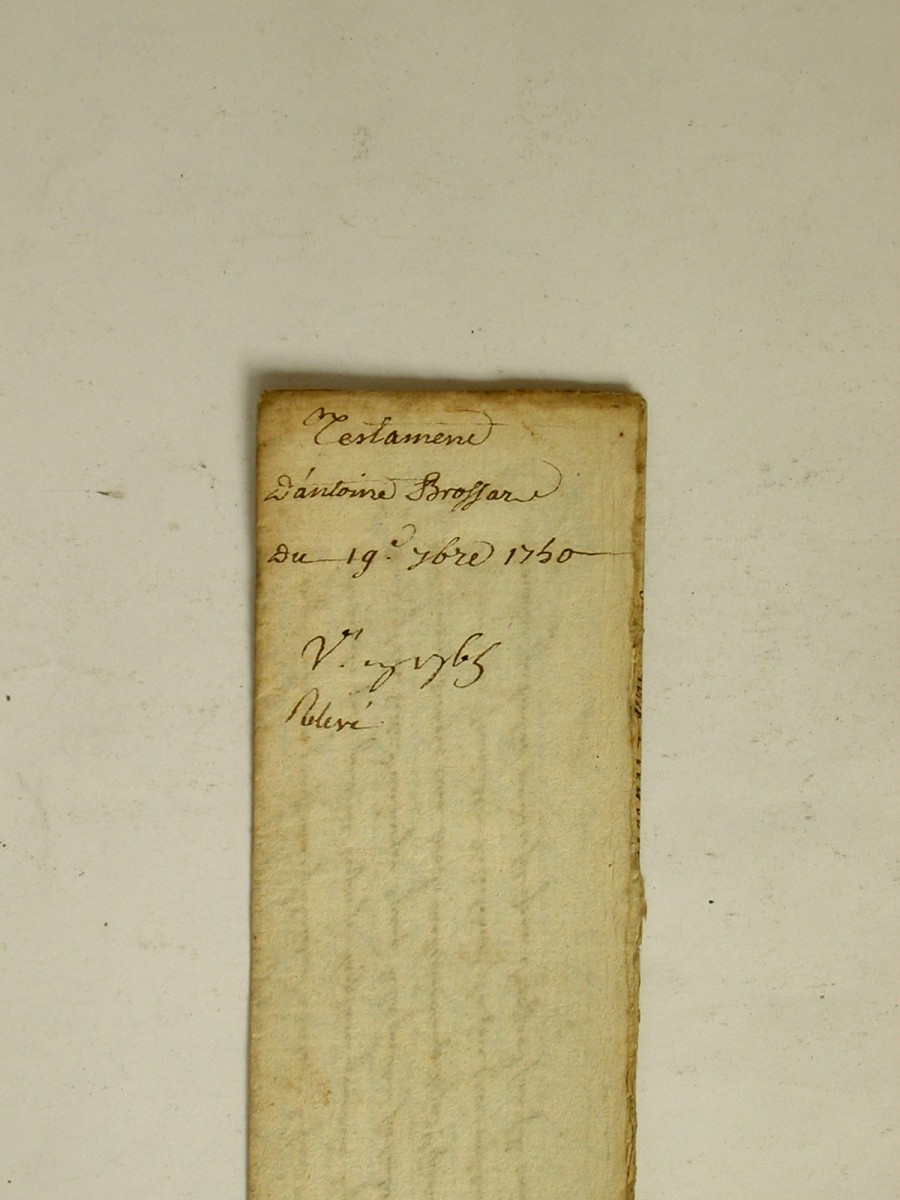 Testament
D'antoine Brossard
Du 19.e 7bre 1750
V.u 1765
Relevé